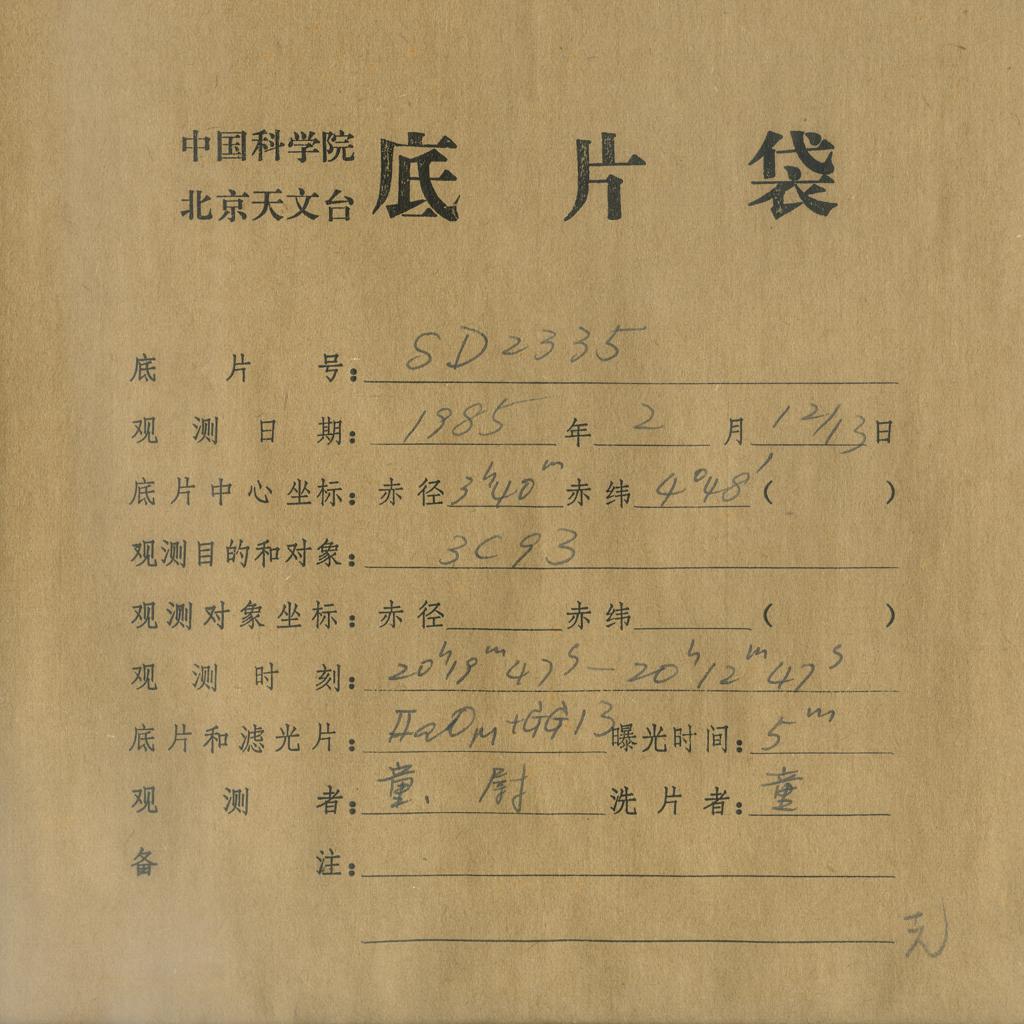 中国科学院
北京天文台
底片袋
底片号：SD2335
观测日期：1985年2月12/13日
底片中心坐标：赤径3h40m赤纬4°48′（ ）
观测目的和对象：3C93
观测对象坐标：赤径 赤纬 （ ）
观测时刻：20h19m47s—20h12m47s
底片和滤光片：IIaOM+GG13曝光时间：5m
观测者：童、尉 洗片者：童
备注：